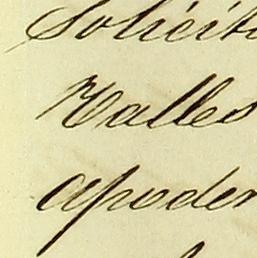 Solicit
Valles
apoder